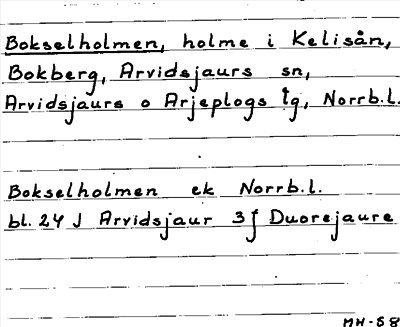 Bokselholmen, holme i Kelisån,
Bokberg, Arvidsjaurs sn,
Arvidsjaurs o Arjeplogs tg, Norrb.l.
Bokselholmen ek Norrb.l.
bl. 24 J Arvidsjaur 3f Duorejaure
MH-58